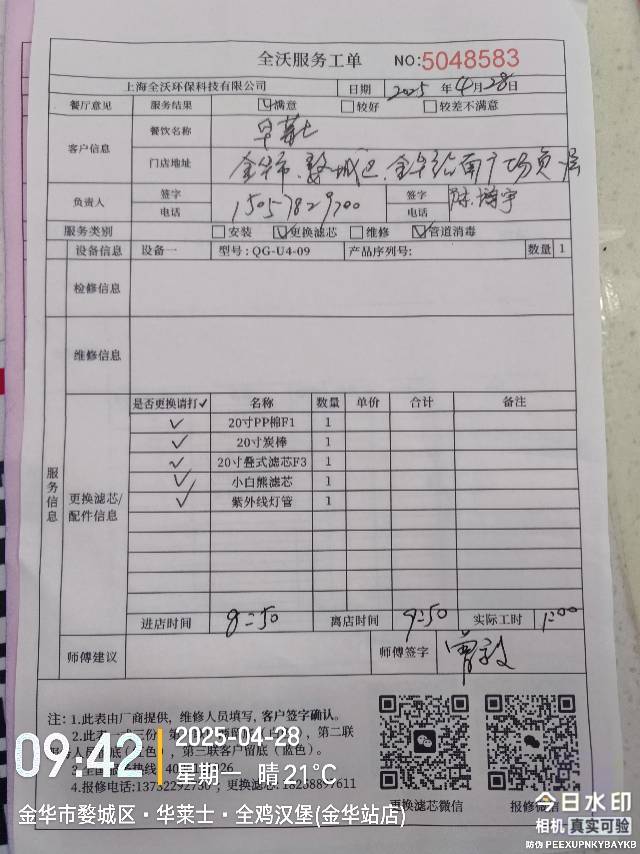 全沃服务工单 NO:5048583
上海全沃环保科技有限公司 日期 2025 年 4 月 28 日
餐厅意见 服务结果 ☑满意 □较好 □较差不满意
客户信息 餐饮名称 华莱士
门店地址 金华市婺城区金华站南广场负一层
负责人 签字 签字
电话 15057829700 电话
服务类别 □安装 ☑更换滤芯 □维修 ☑管道消毒
设备信息 设备一 型号:QG-U4-09 产品序列号: 数量 1
检修信息
维修信息
服务信息
更换滤芯/配件信息
是否更换请打✓ 名称 数量 单价 合计 备注
✓ 20寸PP棉F1 1
✓ 20寸炭棒 1
✓ 20寸叠式滤芯F3 1
✓ 小白熊滤芯 1
✓ 紫外线灯管 1
进店时间 8:50 离店时间 9:50 实际工时 1:00
师傅建议 师傅签字
注:1.此表由厂商提供,维修人员填写,客户签字确认。
2.此表 第二联
第三联客户留底(蓝色)。
4.报修电话:13732292730 更换滤芯:18268897611
更换滤芯微信 报修微信
09:42
2025-04-28
星期一 晴 21℃
金华市婺城区·华莱士·全鸡汉堡(金华站店)
今日水印
相机 真实可验
防伪 PEEXUPNKYBAYKB